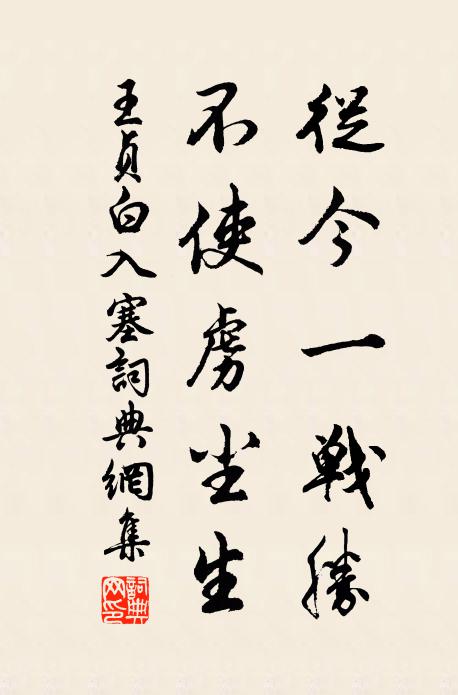 從今一戰勝
不使虜尘生
王貞白入塞詞典網集
詞典网印